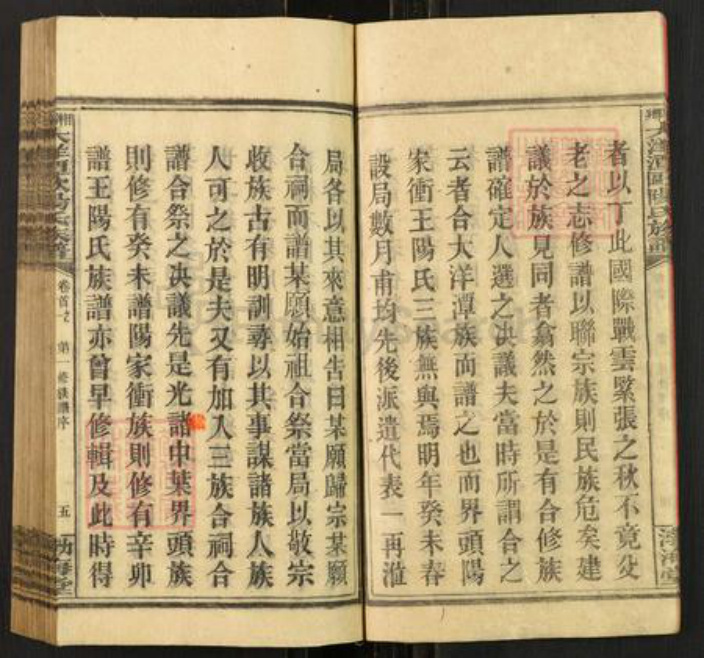 者以丁此國際戰雲緊張之秋不竟父
老之志修譜以聯宗族則民族危矣建
議於族見同者翕然之於是有合修族
譜確定人選之决議夫當時所謂合之
云者合大洋潭族而譜之也而界頭陽
家衝王陽氏三族無與焉明年癸未春
設局數月甫均先後派遣代表一再蒞
局各以其來意相吿曰某願歸宗某願
合祠而譜某願始祖合祭當局以敬宗
收族古有明訓尋以其事謀諸族人族
人可之於是夫又有加入三族合祠合
譜合祭之决議先是光諸中葉界頭族
則修有癸未譜陽家衝族則修有辛卯
譜王陽氏族譜亦曾早修輯及此時得
卷首之
五